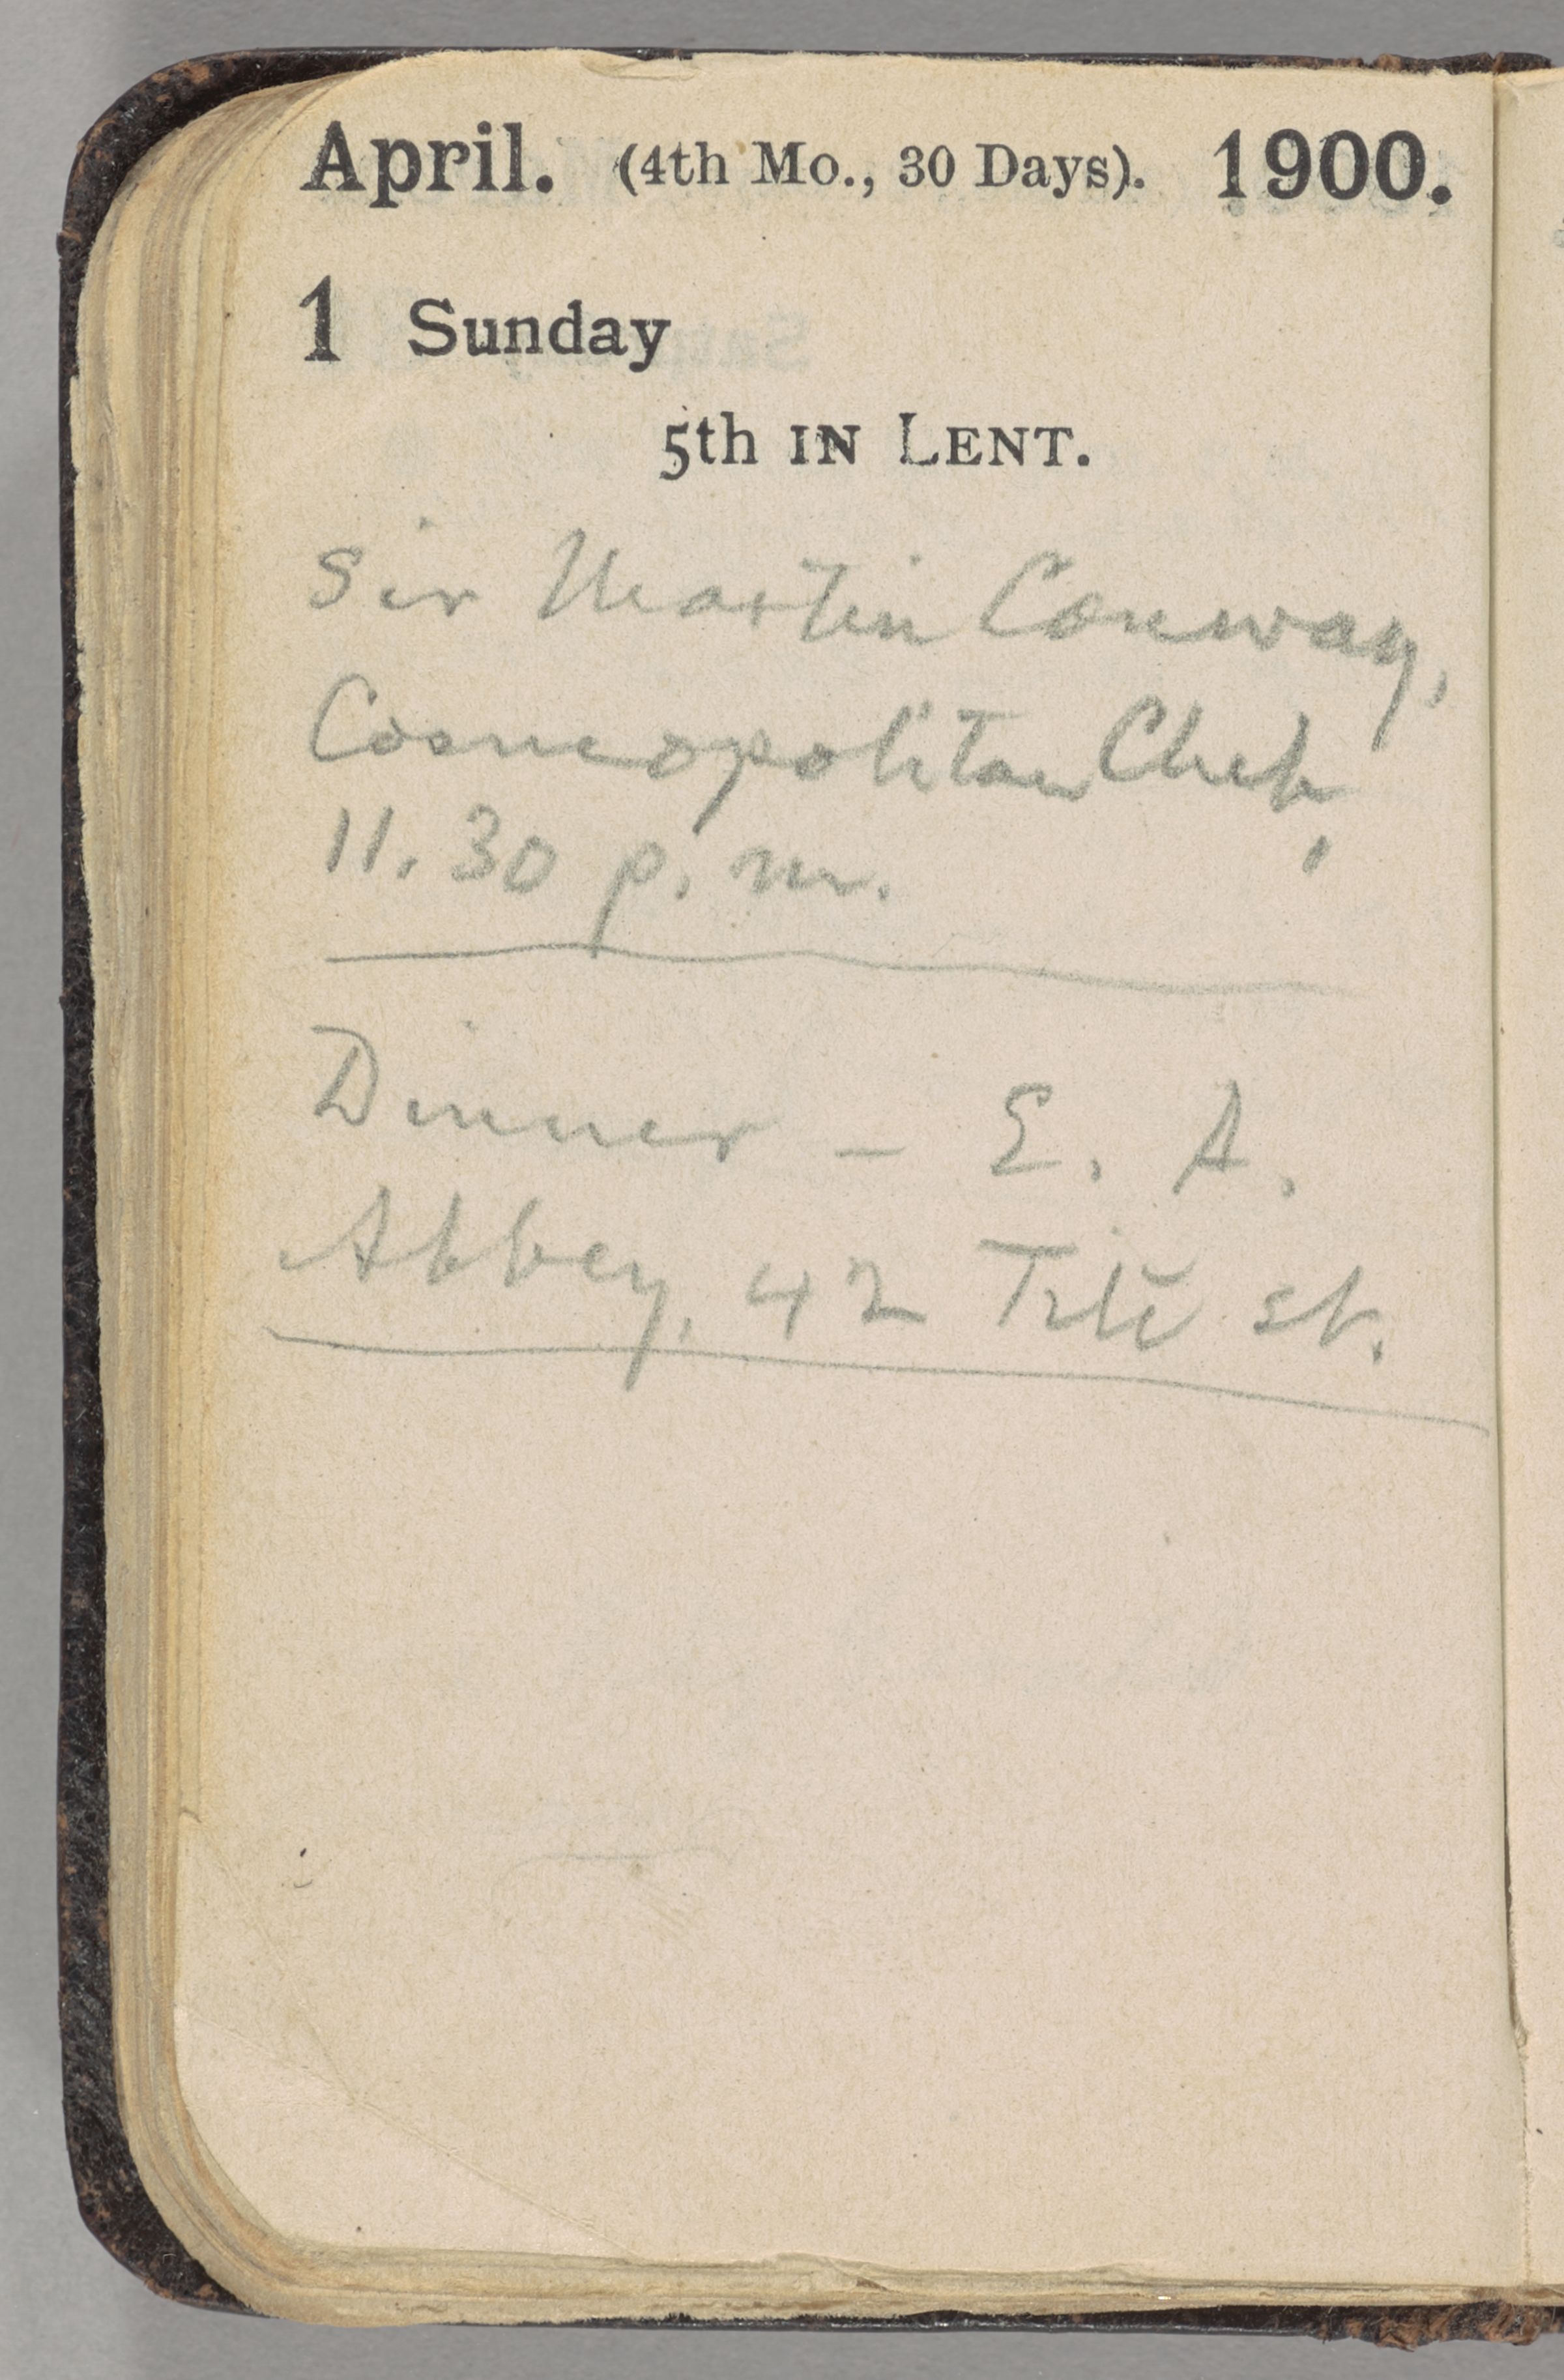 April. (4th Mo., 30 Days). 1900.
1 Sunday
5th IN LENT.
Sir Martin Conway,
Cosmopolitan Club,
11.30 p.m.
Dinner – E. A.
Abbey, 42 Tite st.